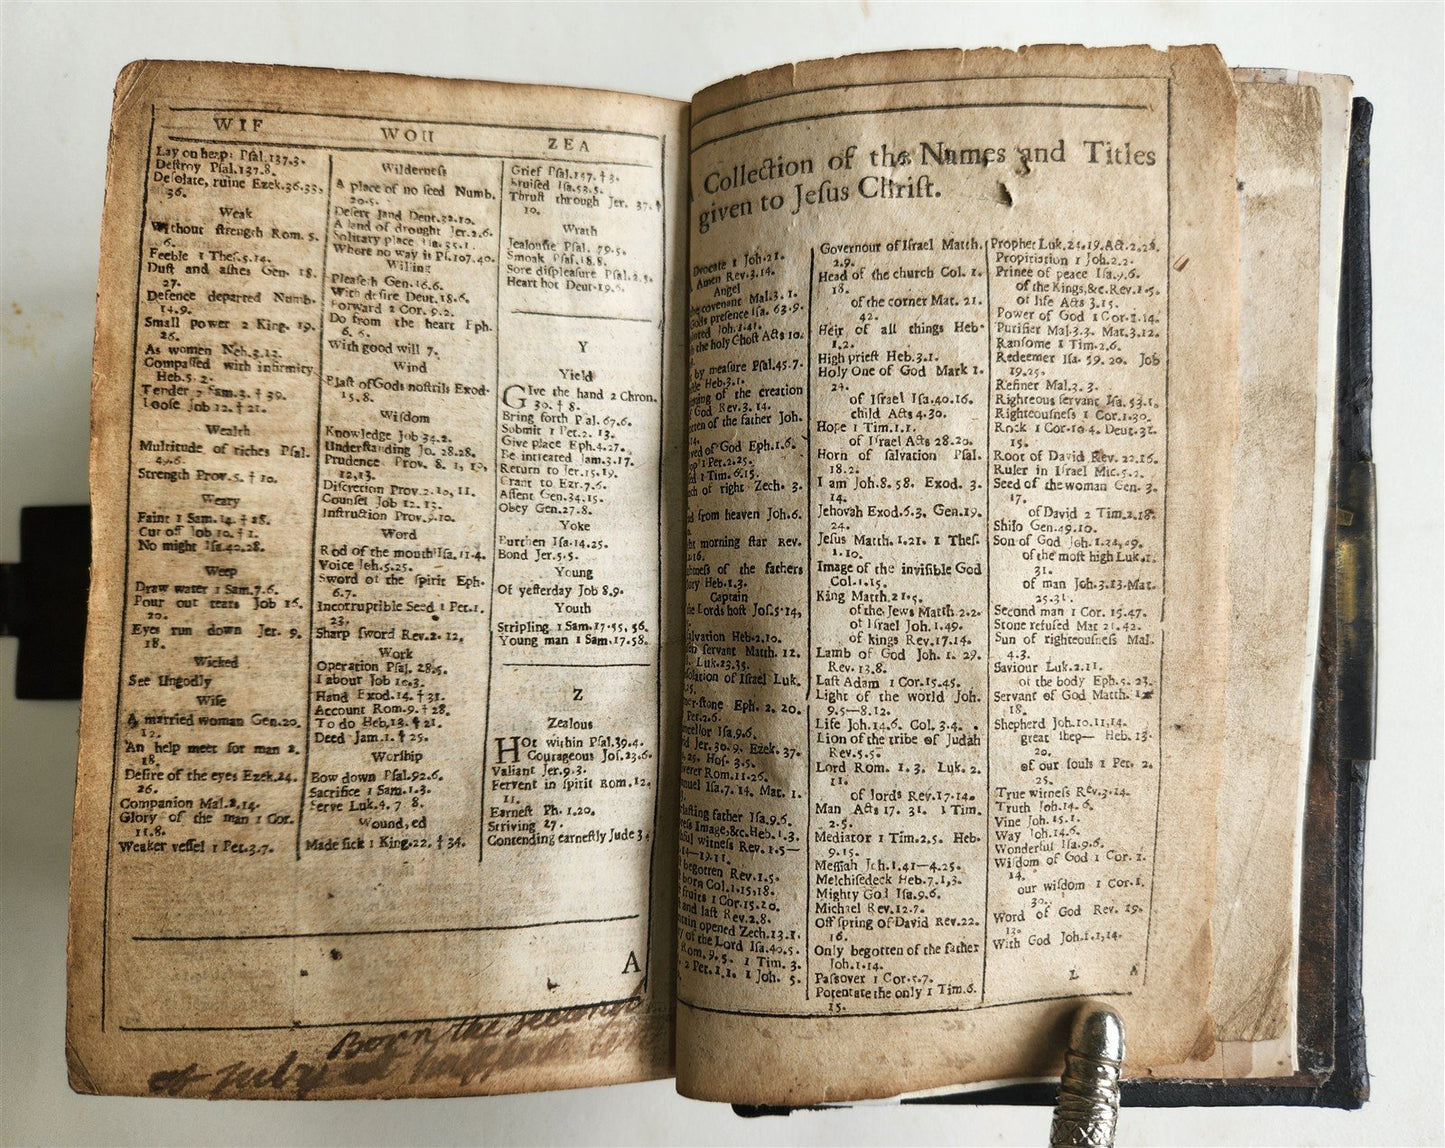 WIF
Lay on heap: Pſal.137.3.
Deſtroy Pſal.137.8.
Deſolate, ruine Ezek.36.33,
36.
Weak
Without ſtrength Rom. 5.
6.
Feeble 1 Theſ.5.14.
Duſt and aſhes Gen. 18.
27.
Defence departed Numb.
14.9.
Small power 2 King. 19.
26.
As women Neh.3.13.
Compaſſed with infirmity
Heb.5.2.
Tender 2 Sam.3. † 39.
Looſe Job 12. † 21.
Wealth
Multitude of riches Pſal.
49.6.
Strength Prov.5. † 10.
Weary
Faint 1 Sam.14. † 28.
Cut off Job 10. † 1.
No might Iſa.40.28.
Weep
Draw water 1 Sam.7.6.
Pour out tears Job 16.
20.
Eyes run down Jer. 9.
18.
Wicked
See Ungodly
Wife
A married woman Gen.20.
12.
An help meet for man 2.
18.
Deſire of the eyes Ezek.24.
26.
Companion Mal.2.14.
Glory of the man 1 Cor.
11.8.
Weaker veſſel 1 Pet.3.7.
WOU
Wilderneſs
A place of no ſeed Numb.
20.5.
Deſert land Deut.32.10.
A land of drought Jer.2.6.
Solitary place Iſa.35.1.
Where no way is Pſ.107.40.
Willing
Pleaſeth Gen.16.6.
With deſire Deut.18.6.
Forward 2 Cor. 9.2.
Do from the heart Eph.
6. 6.
With good will 7.
Wind
Blaſt of Gods noſtrils Exod.
15.8.
Wiſdom
Knowledge Job 34.2.
Underſtanding Jo. 28.28.
Prudence Prov. 8. 1, 10,
12,13.
Diſcretion Prov.2.10, 11.
Counſel Job 12. 13.
Inſtruction Prov.9.10.
Word
Rod of the mouth Iſa.11.4.
Voice Joh.5.25.
Sword of the ſpirit Eph.
6.7.
Incorruptible Seed 1 Pet.1.
23.
Sharp ſword Rev.2. 12.
Work
Operation Pſal. 28.5.
Labour Job 10.3.
Hand Exod.14. † 31.
Account Rom.9. † 28.
To do Heb.13. † 21.
Deed Jam.1. † 25.
Worſhip
Bow down Pſal.92.6.
Sacrifice 1 Sam.1.3.
Serve Luk.4. 7 8.
Wound, ed
Made ſick 1 King.22. † 34.
ZEA
Grief Pſal.147. † 3.
Bruiſed Iſa.53.5.
Thruſt through Jer. 37. †
10.
Wrath
Jealouſie Pſal. 79.5.
Smoak Pſal.18.8.
Sore diſpleaſure Pſal.2.5.
Heart hot Deut.19.6.
Y
Yield
GIve the hand 2 Chron.
30. † 8.
Bring forth Pſal.67.6.
Submit 1 Pet.2. 13.
Give place Eph.4.27.
Be intreated Jam.3.17.
Return to Jer.15.19.
Grant to Ezr.7.6.
Aſſent Gen.34.15.
Obey Gen.27.8.
Yoke
Burthen Iſa.14.25.
Bond Jer.5.5.
Young
Of yeſterday Job 8.9.
Youth
Stripling 1 Sam.17.55, 56.
Young man 1 Sam.17.58.
Z
Zealous
HOt within Pſal.39.4.
Courageous Joſ.23.6.
Valiant Jer.9.3.
Fervent in ſpirit Rom.12.
11.
Earneſt Ph. 1.20.
Striving 27.
Contending earneſtly Jude 3.
A
Born the second
of July
Collection of the Names and Titles
given to Jeſus Chriſt.
Advocate 1 Joh.2.1.
Amen Rev.3.14.
Angel
covenant Mal.3. 1.
Gods preſence Iſa. 63.9.
Joh.1.41.
the holy Ghoſt Acts 10.
by meaſure Pſal.45.7.
Heb.3.1.
of the creation
God Rev.3. 14.
of the father Joh.
of God Eph.1.6.
1 Pet.2.25.
1 Tim.6.15.
of right Zech. 3.
from heaven Joh.6.
morning ſtar Rev.
of the fathers
Heb.1.3.
Captain
the Lords hoſt Joſ.5.14,
ſalvation Heb.2.10.
ſervant Matth. 12.
Luk.23.35.
of Iſrael Luk.
ſtone Eph. 2. 20.
Pet.2.6.
Iſa.9.6.
Jer.30.9. Ezek. 37.
25. Hoſ. 3.5.
Rom.11.26.
Iſa.7. 14. Mat. 1.
father Iſa.9.6.
Image,&c.Heb.1.3.
witneſs Rev. 1.5—
begotten Rev.1.5.
born Col.1.15,18.
fruits 1 Cor.15.20.
and laſt Rev.2.8.
opened Zech.13.1.
of the Lord Iſa.40.5.
Rom.9.5. 1 Tim. 3.
2 Pet.1.1. 1 Joh. 5.
Governour of Iſrael Matth.
2.9.
Head of the church Col. 1.
18.
of the corner Mat. 21.
42.
Heir of all things Heb.
1.2.
High prieſt Heb.3.1.
Holy One of God Mark 1.
24.
of Iſrael Iſa.40.16.
child Acts 4.30.
Hope 1 Tim.1.1.
of Iſrael Acts 28.20.
Horn of ſalvation Pſal.
18.2.
I am Joh.8. 58. Exod. 3.
14.
Jehovah Exod.6.3. Gen.19.
24.
Jeſus Matth. 1.21. 1 Theſ.
1.10.
Image of the inviſible God
Col.1.15.
King Matth.21.5.
of the Jews Matth 2.2.
of Iſrael Joh. 1.49.
of kings Rev.17.14.
Lamb of God Joh. 1. 29.
Rev. 13.8.
Laſt Adam 1 Cor.15.45.
Light of the world Joh.
9.5—8.12.
Life Joh.14.6. Col. 3.4.
Lion of the tribe of Judah
Rev.5.5.
Lord Rom. 1. 3. Luk. 2.
11.
of lords Rev.17.14.
Man Acts 17. 31. 1 Tim.
2.5.
Mediator 1 Tim.2.5. Heb.
9.15.
Meſſiah Joh.1.41—4.25.
Melchiſedeck Heb.7.1,3.
Mighty God Iſa.9.6.
Michael Rev.12.7.
Offſpring of David Rev.22.
16.
Only begotten of the father
Joh.1.14.
Paſsover 1 Cor.5.7.
Potentate the only 1 Tim.6.
15.
Prophet Luk.24.19.Act.2.22.
Propitiation 1 Joh.2.2.
Prince of peace Iſa.9.6.
of the Kings,&c.Rev.1.5.
of life Acts 3.15.
Power of God 1 Cor.1.14.
Purifier Mal.3.3. Mat.3.12.
Ranſome 1 Tim.2.6.
Redeemer Iſa. 59. 20. Job
19.25.
Refiner Mal.3. 3.
Righteous ſervant Iſa. 53.1.
Righteouſneſs 1 Cor.1.30.
Rock 1 Cor.10.4. Deut.32.
15.
Root of David Rev. 22.16.
Ruler in Iſrael Mic.5.2.
Seed of the woman Gen. 3.
17.
of David 2 Tim.2.18.
Shilo Gen.49.10.
Son of God Joh. 1.24,49.
of the moſt high Luk.1.
31.
of man Joh.3.13.Mat.
25.31.
Second man 1 Cor. 15.47.
Stone refuſed Mat 21. 42.
Sun of righteouſneſs Mal.
4.3.
Saviour Luk.2.11.
of the body Eph.5. 23.
Servant of God Matth. 12.
18.
Shepherd Joh.10.11,14.
great ſhep— Heb. 13.
20.
of our ſouls 1 Pet. 2.
25.
True witneſs Rev.3.14.
Truth Joh.14.6.
Vine Joh.15.1.
Way Joh.14.6.
Wonderful Iſa.9.6.
Wiſdom of God 1 Cor. 1.
14.
our wiſdom 1 Cor.1.
30.
Word of God Rev. 19.
13.
With God Joh.1.1,14.
L A